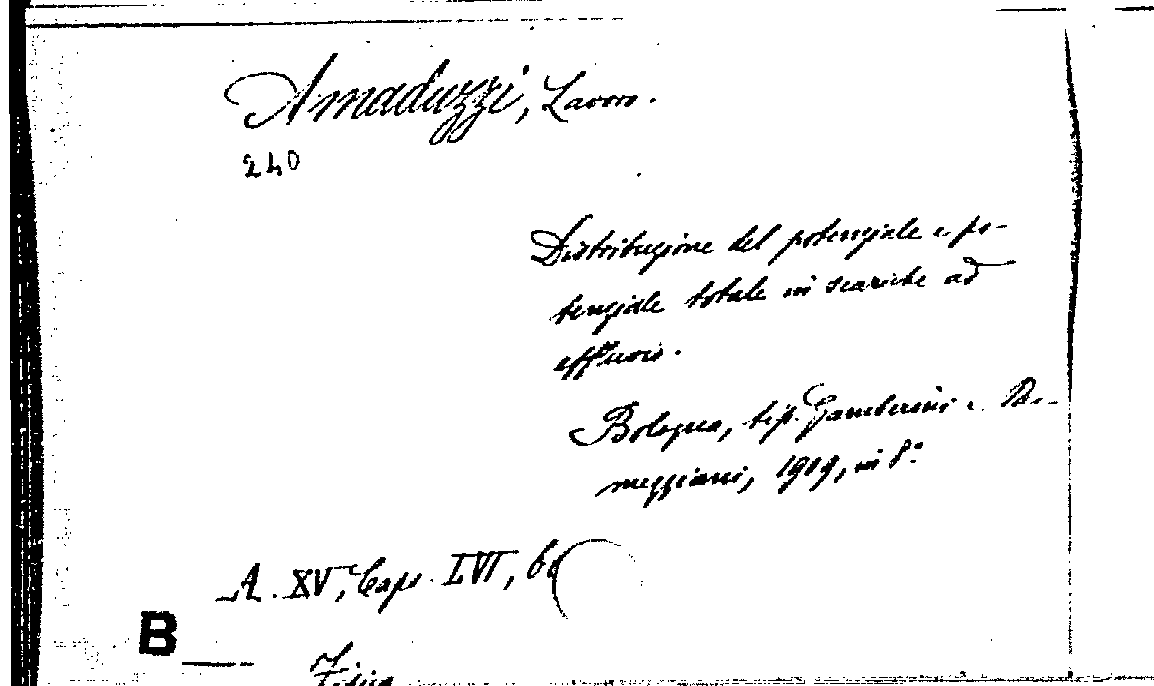 Amaduzzi, Lavoro.
240
Distribuzione del potenziale e po-
tenziale totale in scariche ad
effluvio.
Bologna, tip. Gamberini e Par-
meggiani, 1919, in 8°.
A. XV, Caps. LVI, 60
B
Fisica